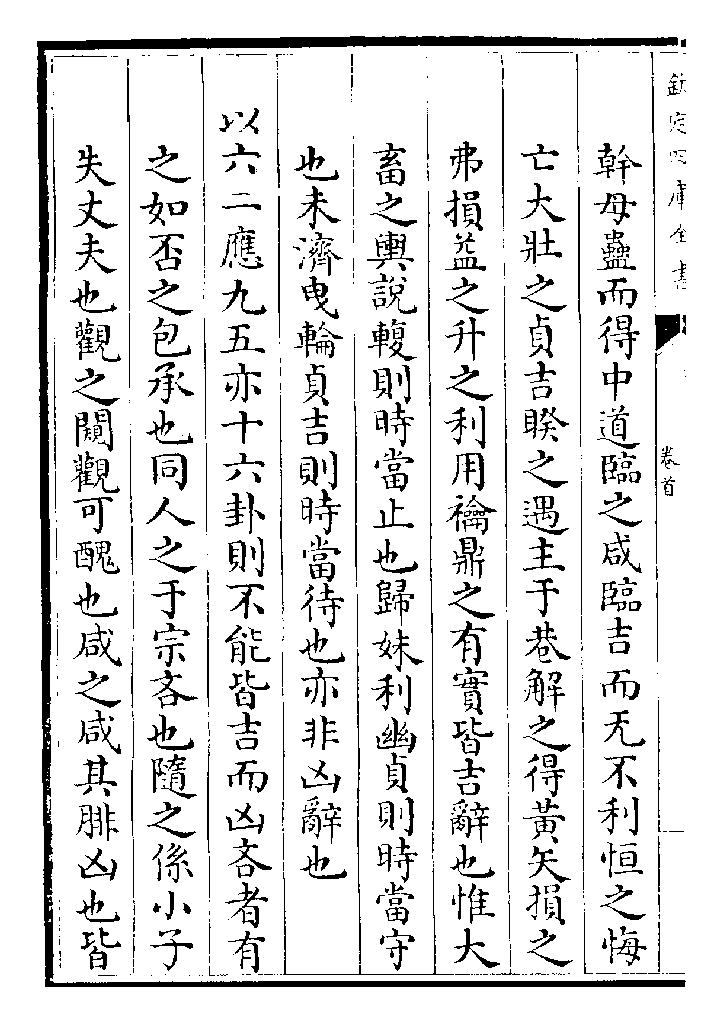 欽定四庫全書
卷首
幹母蠱而得中道臨之咸臨吉而无不利恒之悔
亡大壯之貞吉睽之遇主于巷解之得黃矢損之
弗損益之升之利用禴鼎之有實皆吉辭也惟大
畜之輿說輹則時當止也歸妹利幽貞則時當守
也未濟曳輪貞吉則時當待也亦非凶辭也
以六二應九五亦十六卦則不能皆吉而凶吝者有
之如否之包承也同人之于宗吝也隨之係小子
失丈夫也觀之闚觀可醜也咸之咸其腓凶也皆